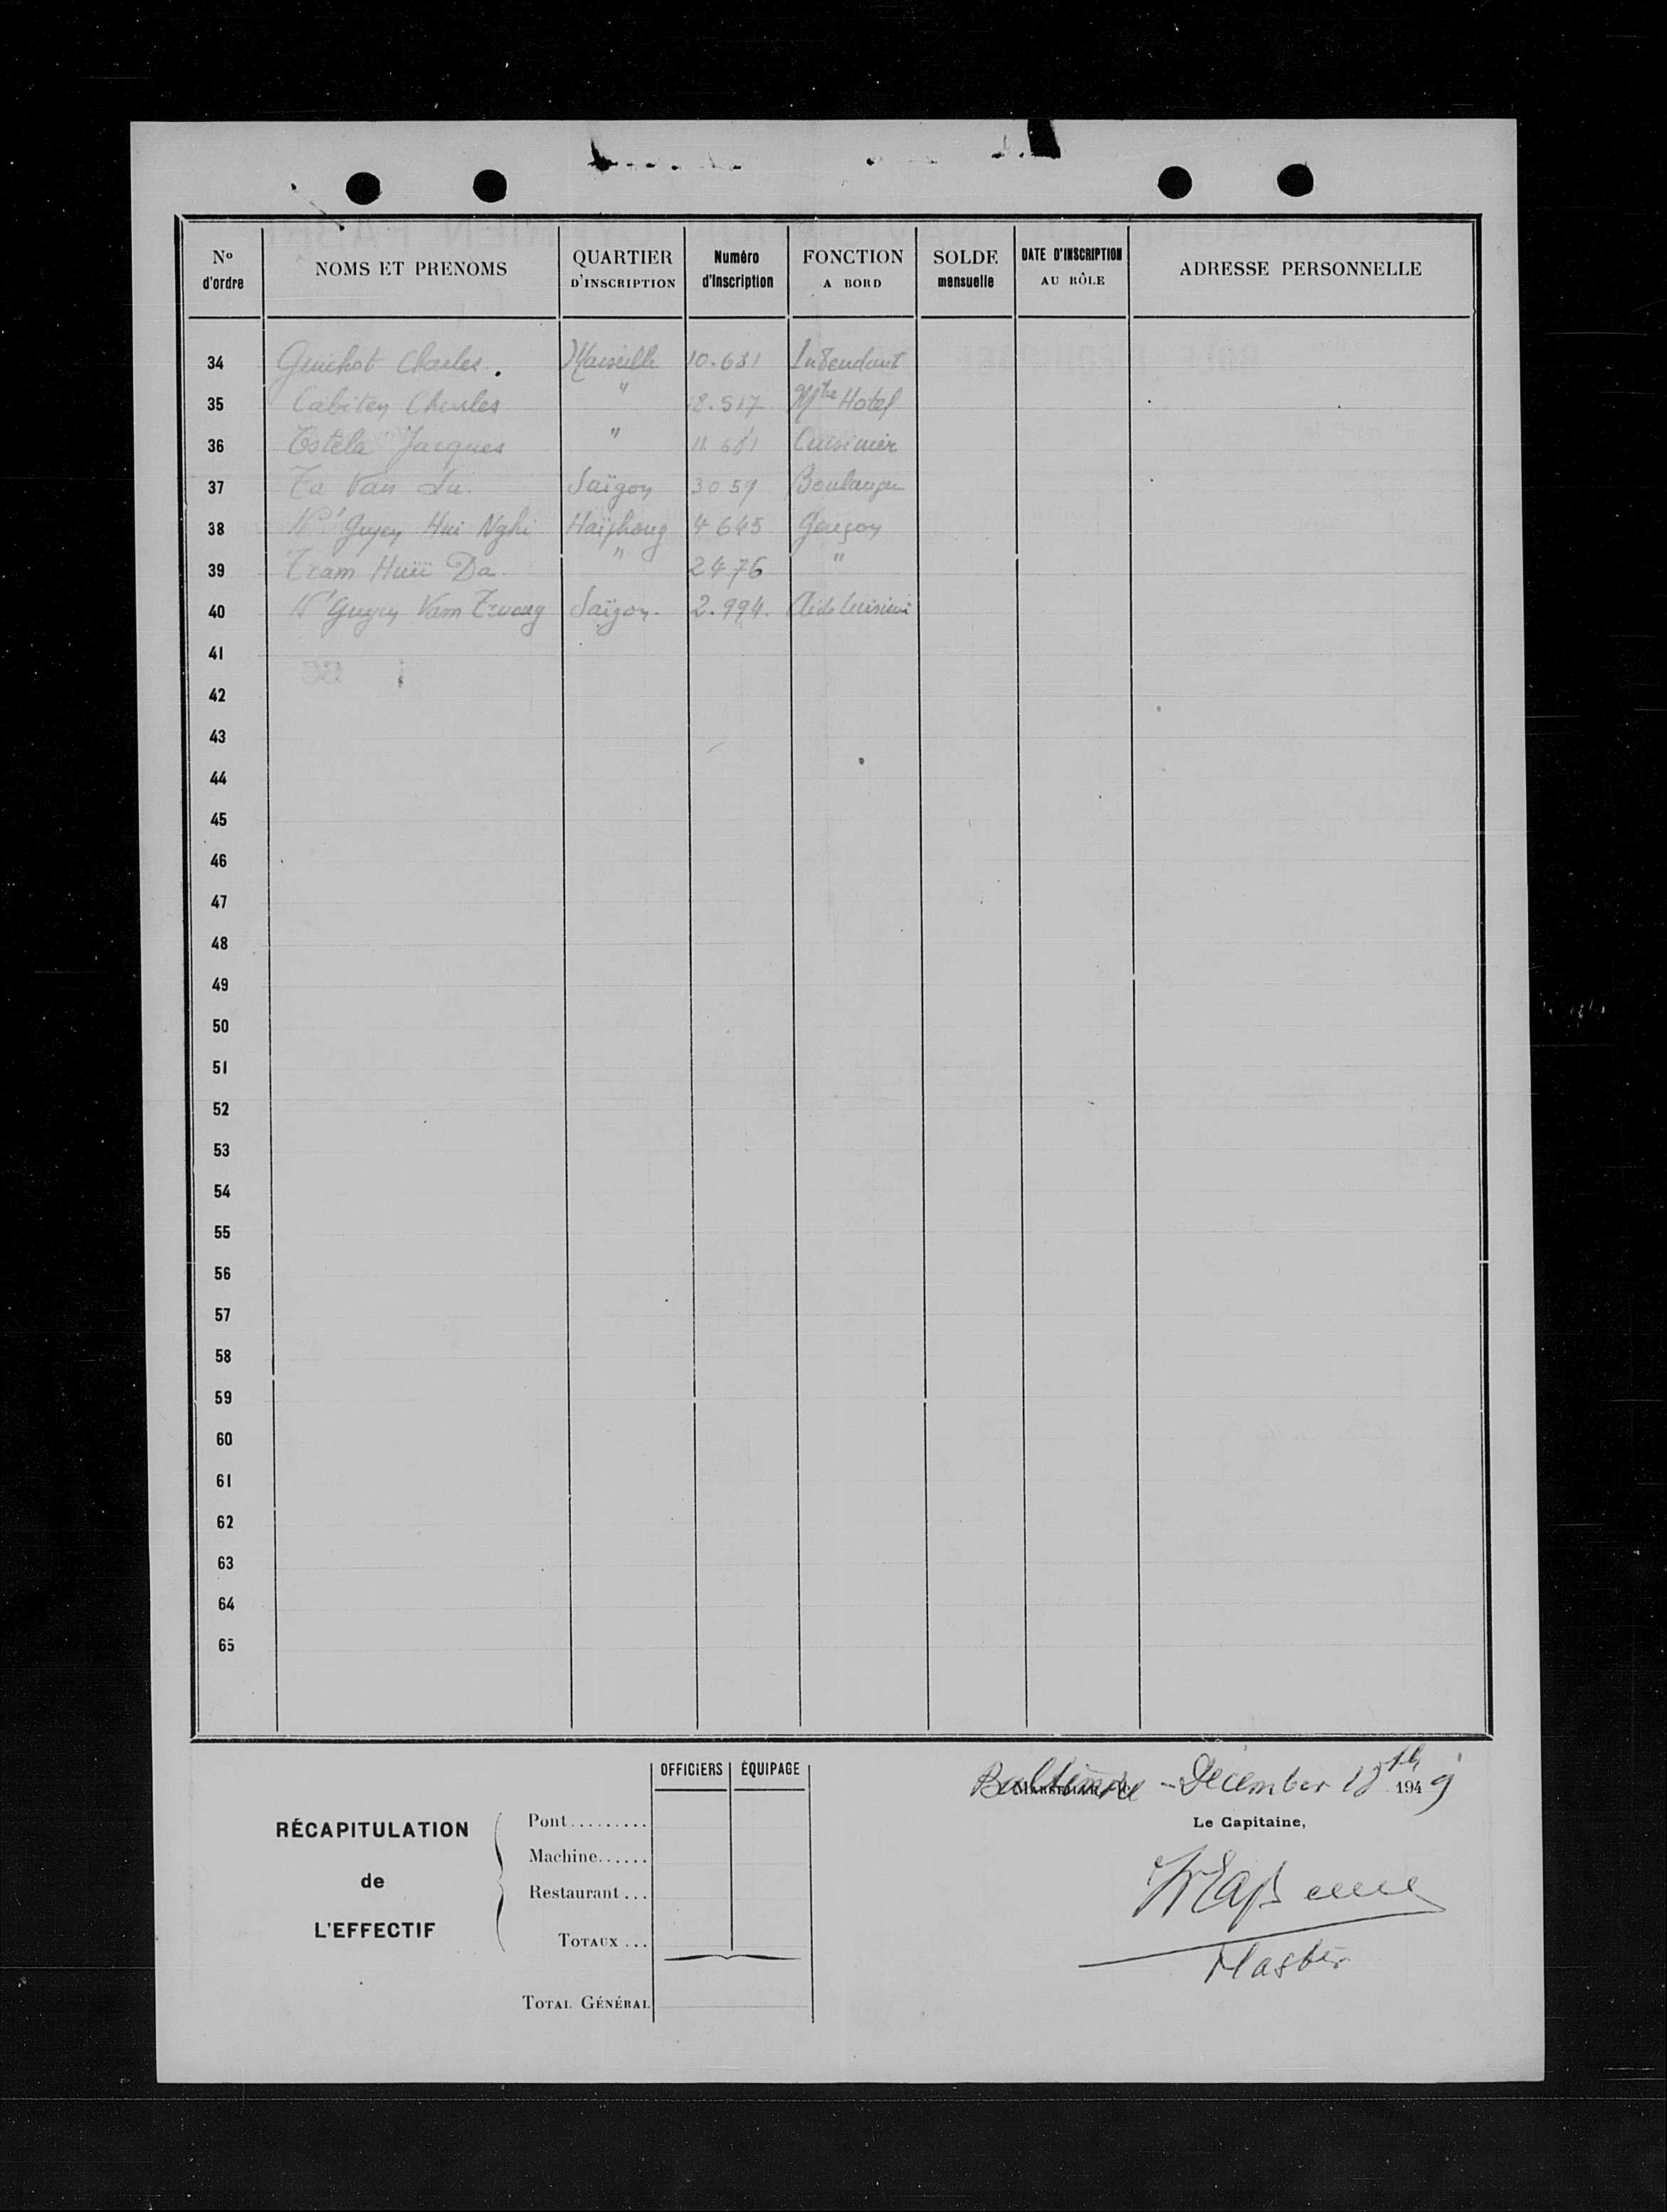 Nº d'ordre NOMS ET PRENOMS QUARTIER D'INSCRIPTION Numéro d'Inscription FONCTION A BORD SOLDE mensuelle DATE D'INSCRIPTION AU RÔLE ADRESSE PERSONNELLE
34 Guichot Charles. Marseille 10.681 Intendant
35 Cabiten Charles " 18.517 Mtre Hotel
36 Estela Jacques " 11.681 Cuisinier
37 Ta Van Lu. Saïgon 3059 Boulanger
38 N'Guyen Hui Nghi Haïphong 4645 Garçon
39 Tram Huu Da. " 2476 "
40 N'Guyen Vam Truong Saïgon. 2.994. Aide Cuisinier
41
42
43
44
45
46
47
48
49
50
51
52
53
54
55
56
57
58
59
60
61
62
63
64
65
RÉCAPITULATION de L'EFFECTIF
OFFICIERS ÉQUIPAGE
Pont.........
Machine......
Restaurant...
TOTAUX...
TOTAL GÉNÉRAL
Baltimore - December 18th 1949
Le Capitaine,
Master